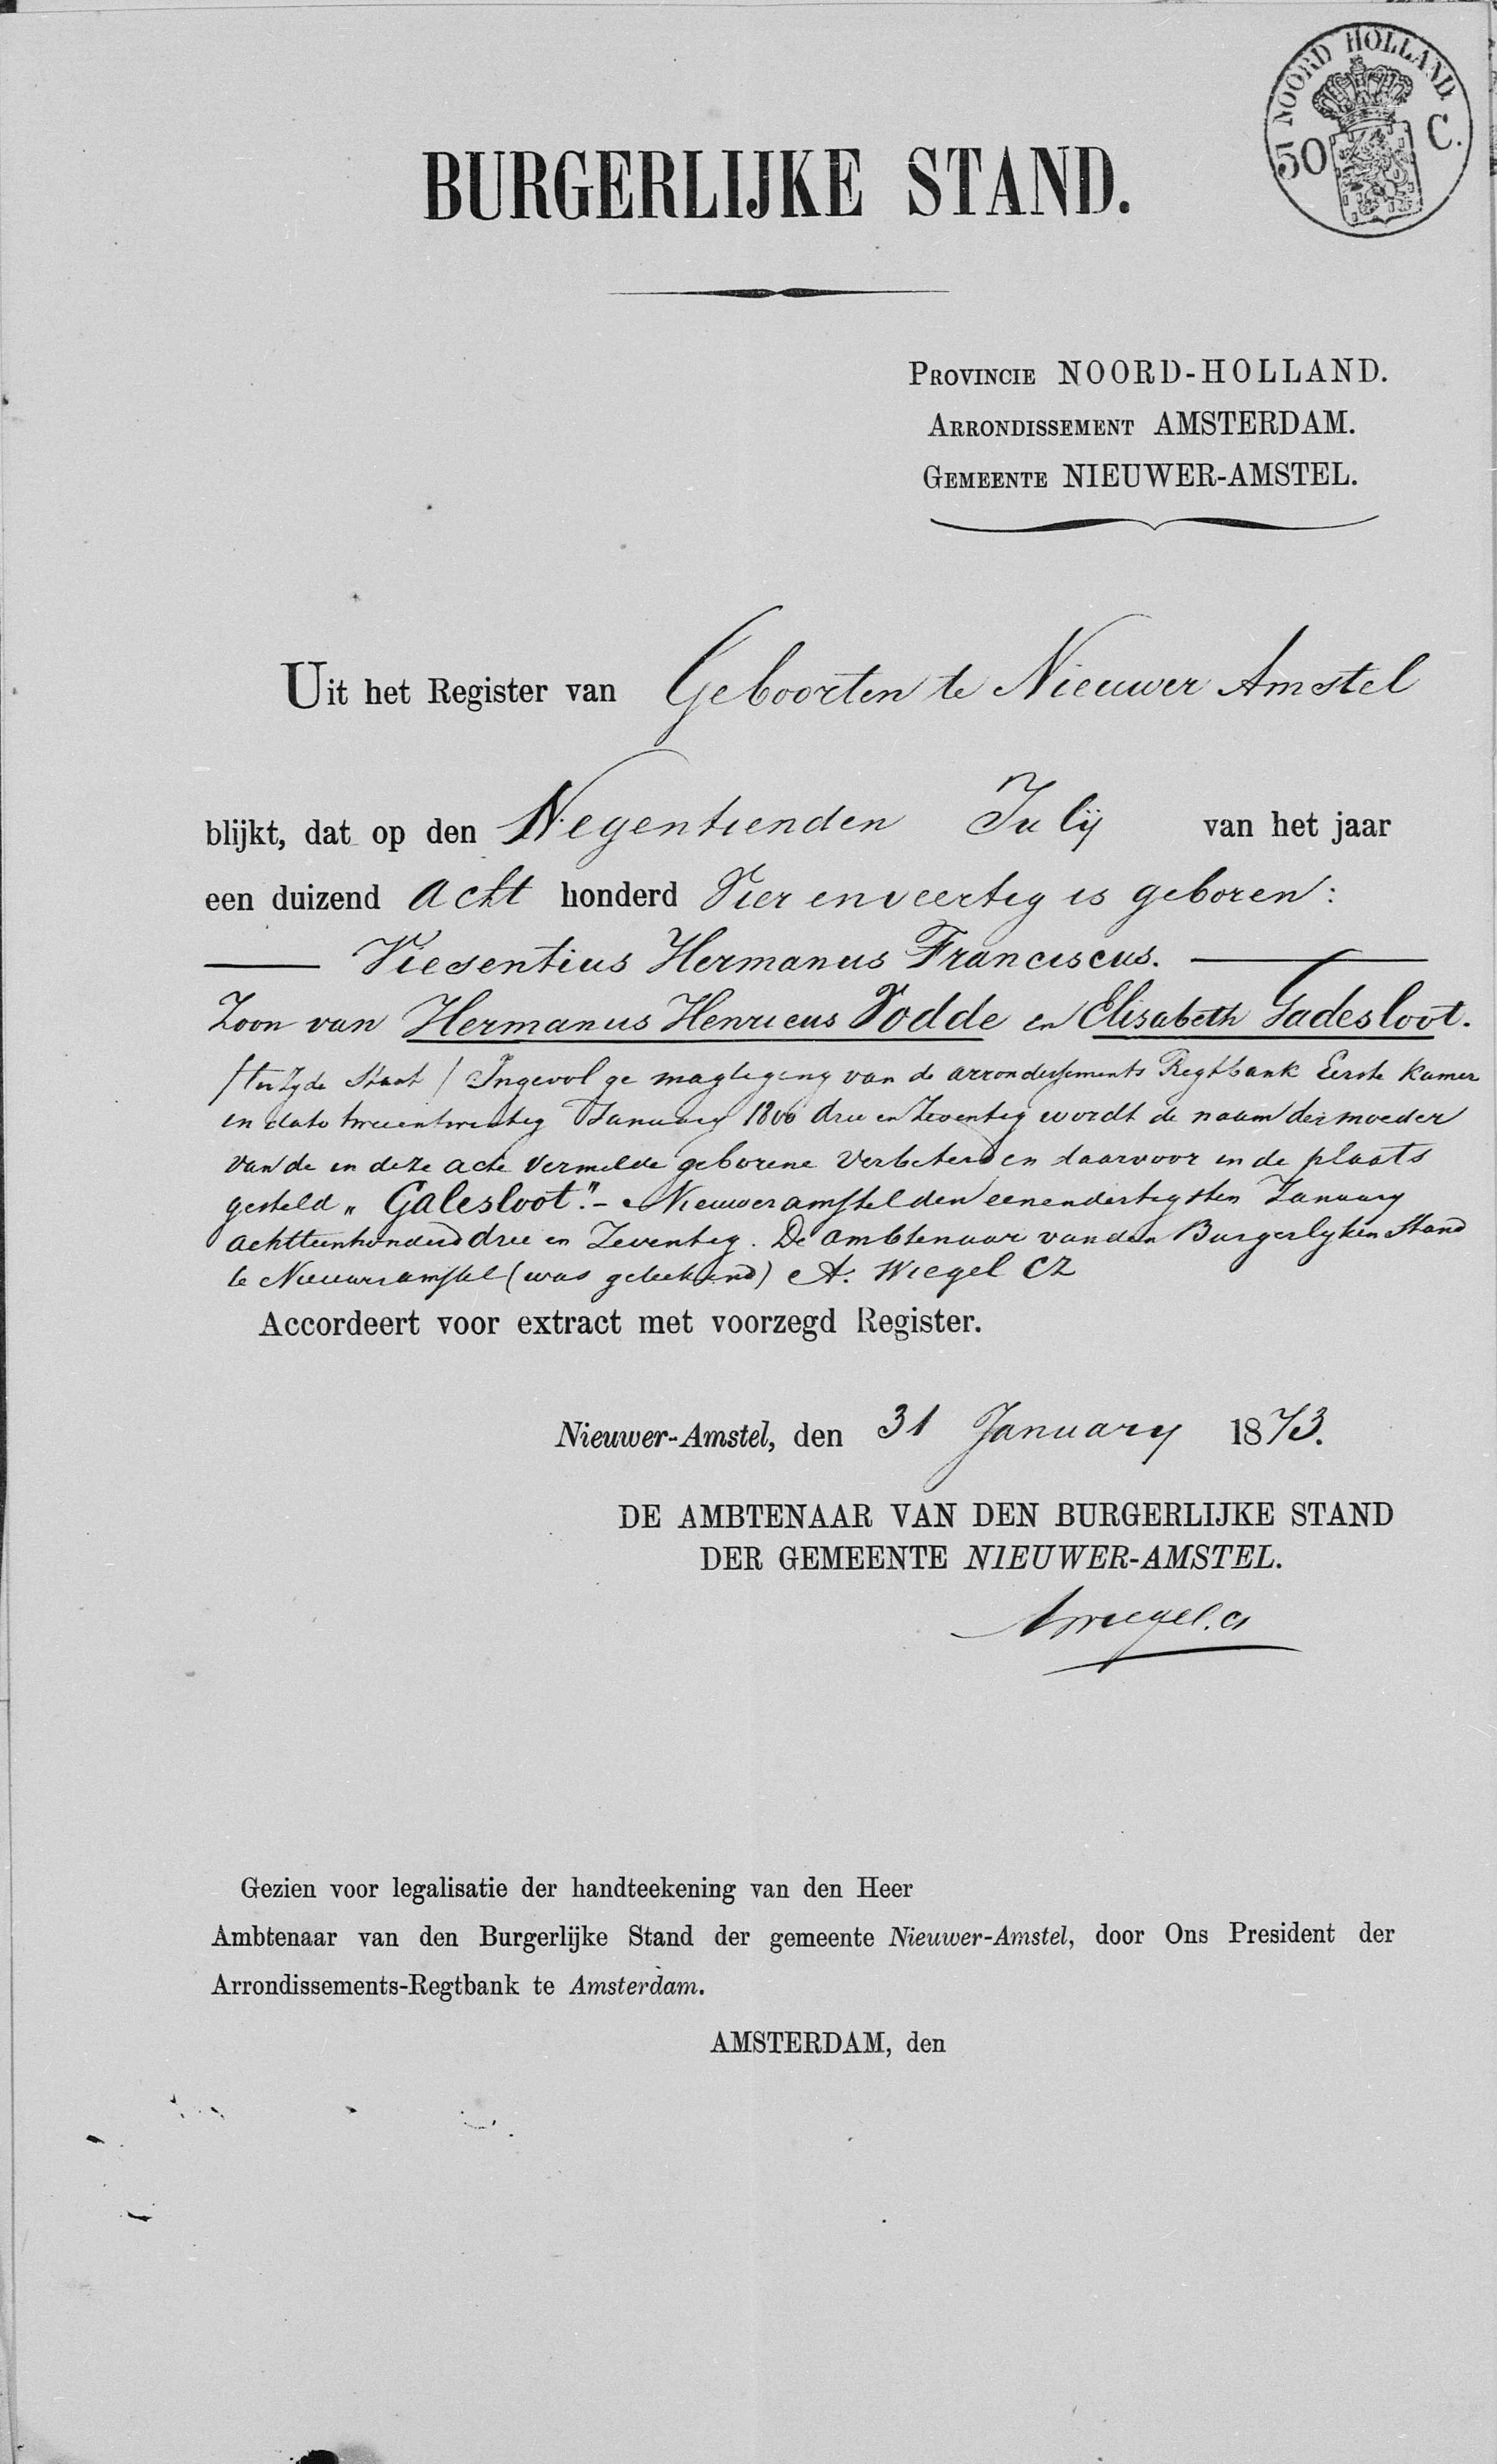 NOORD HOLLAND.
50 C.
BURGERLIJKE STAND.
PROVINCIE NOORD-HOLLAND.
ARRONDISSEMENT AMSTERDAM.
GEMEENTE NIEUWER-AMSTEL.
Uit het Register van Geboorten te Nieuwer Amstel
blijkt, dat op den Negentienden Julij van het jaar
een duizend acht honderd Vier en veertig is geboren:
Viesentius Hermanus Franciscus.
Zoon van Hermanus Henricus Vodde en Elisabeth Gadesloot.
/ter zyde Staat/ Ingevolge magtiging van de arrondissements Regtbank Eerste Kamer
in dato tweeentwintig January 1800 drie en Zeventig wordt de naam der moeder
van de in deze acte vermelde geborene verbeterd en daarvoor in de plaats
gesteld „Galesloot". - Nieuweramstel den eenendertigsten January
achttienhonderd drie en Zeventig. De ambtenaar van den Burgerlyken Stand
te Nieuweramstel (was geteekend) A. Wiegel CZ
Accordeert voor extract met voorzegd Register.
Nieuwer-Amstel, den 31 January 1873.
DE AMBTENAAR VAN DEN BURGERLIJKE STAND
DER GEMEENTE NIEUWER-AMSTEL.
AWiegel. CZ
Gezien voor legalisatie der handteekening van den Heer
Ambtenaar van den Burgerlijke Stand der gemeente Nieuwer-Amstel, door Ons President der
Arrondissements-Regtbank te Amsterdam.
AMSTERDAM, den